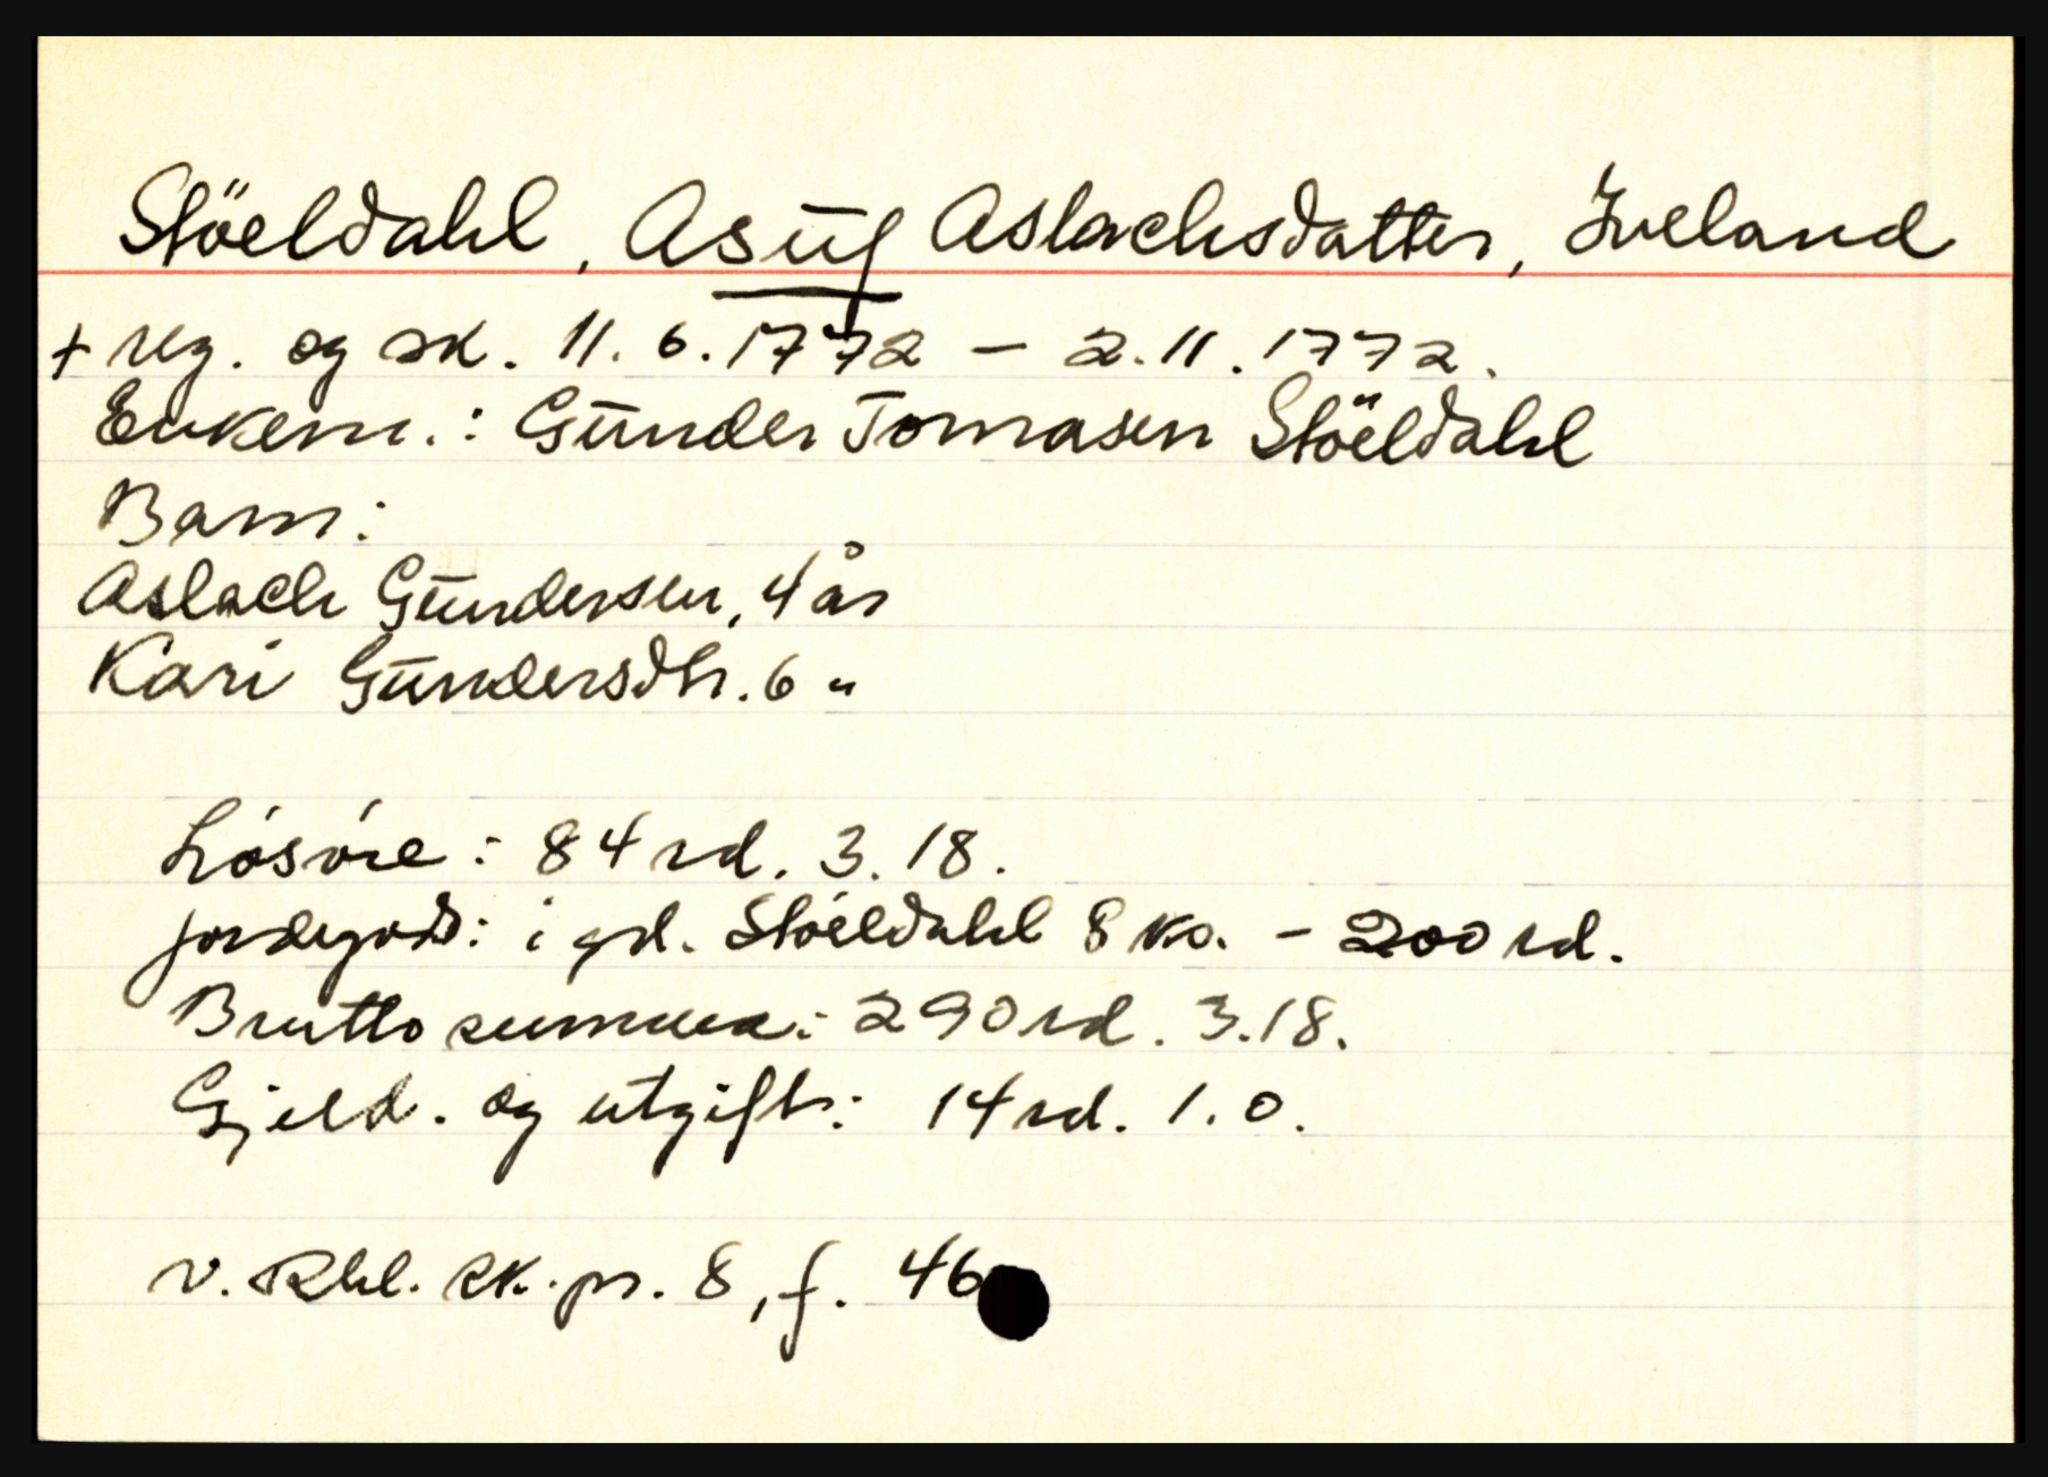 Stöeldahl, Asūf Aslachsdatter, Iveland
+ reg. og sk. 11.6.1772 – 2.11.1772.
Enkem.: Gūnder Tomasen Stöeldahl
Barn:
Aslach Gūndersen, 4 år
Kari Gūndersdtr. 6 "
Lösöre: 84 rd. 3. 18.
jordegods: i gd. Stöeldahl 8 ks. – 200 rd.
Brutto summa: 290 rd. 3.18.
Gjeld. og utgift: 14 rd. 1. 0.
v. Rbl. sk. pr. 8, f. 46